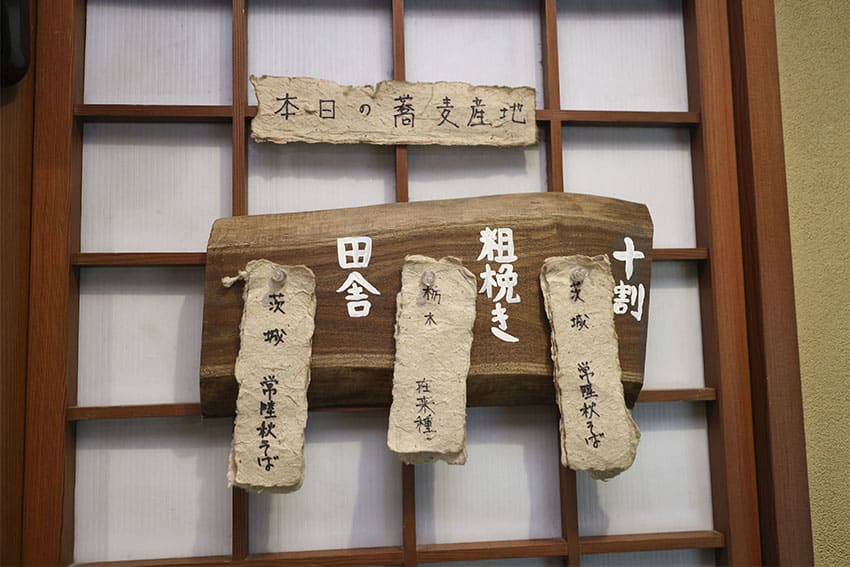 本日の蕎麦産地
十割
茨城 常陸秋そば
粗挽き
栃木 在来種
田舎
茨城 常陸秋そば